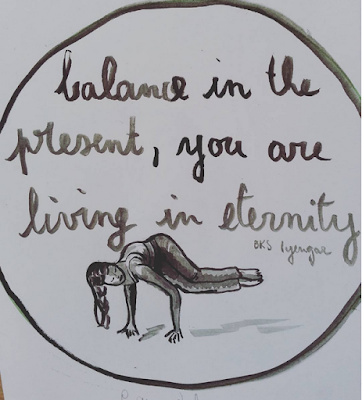 balance in the
present, you are
living in eternity
BKS Iyengar